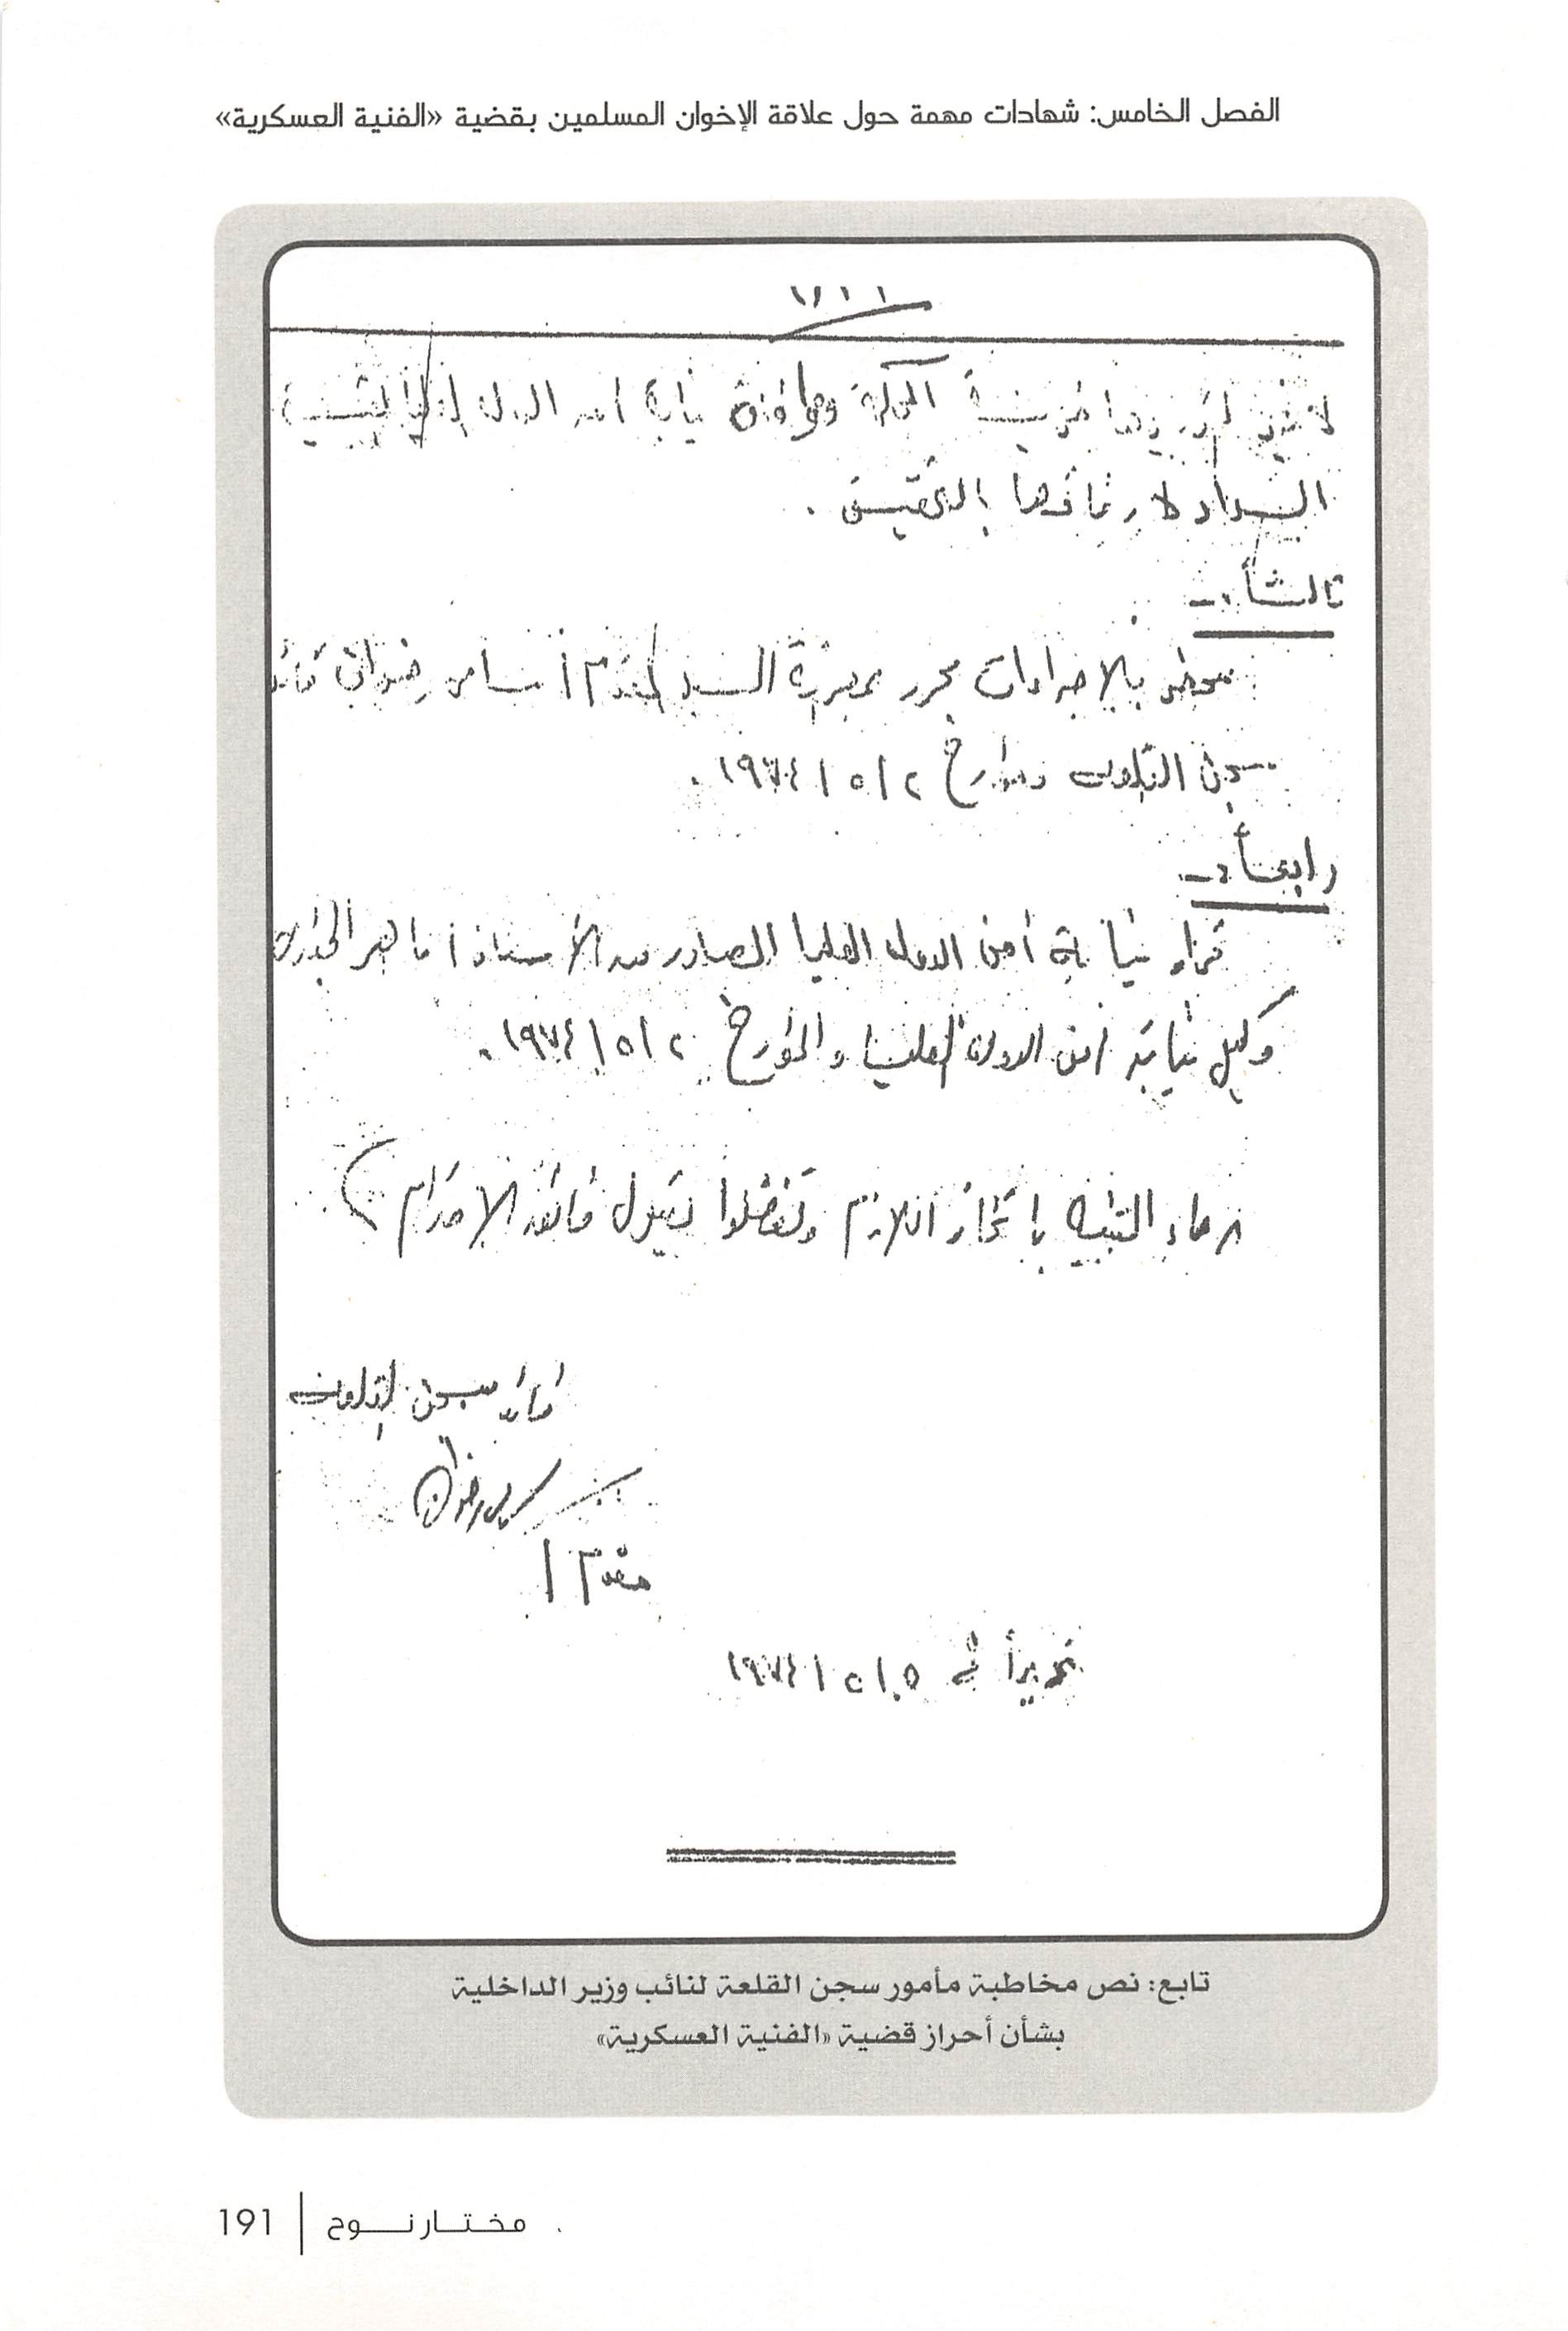 الفصل الخامس: شهادات مهمة حول علاقة الإخوان المسلمين بقضية «الفنية العسكرية»
وموافاة نيابة أمن الدولة العليا
السداد لإرفاقها بالتحقيق .
ثالثاً :ـ
محضر بالإجراءات محرر بمعرفة السيد المقدم / سامى رضوان قائد
سجن القلعة ومؤرخ ٢ / ٥ / ١٩٧٤ .
رابعاً :ـ
قرار نيابة أمن الدولة العليا الصادر من الأستاذ / ماهر الجندى
وكيل نيابة أمن الدولة العليا والمؤرخ ٢ / ٥ / ١٩٧٤ .
برجاء التنبيه باتخاذ اللازم وتفضلوا بقبول فائق الاحترام
قائد سجن القلعة
مقدم /
تحريراً فى ٥ / ٥ / ١٩٧٤
تابع: نص مخاطبة مأمور سجن القلعة لنائب وزير الداخلية
بشأن أحراز قضية «الفنية العسكرية»
مختار نوح | 191